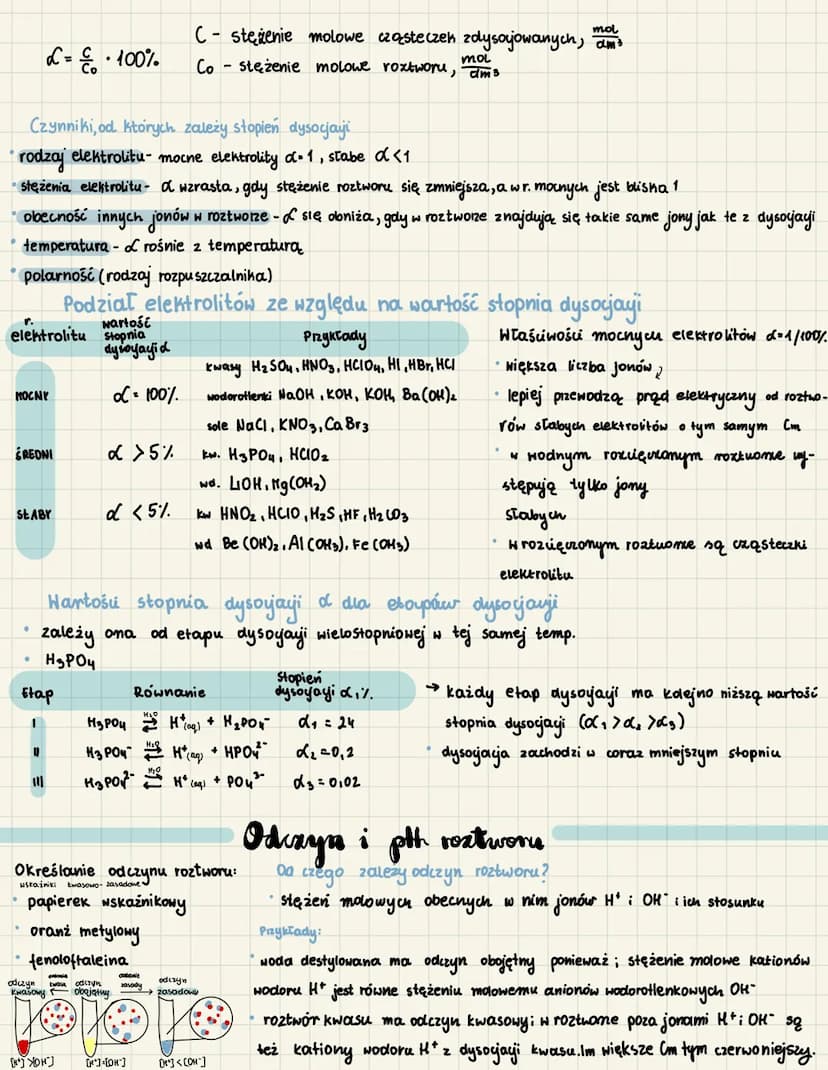 α = C/C₀ · 100%
C - stężenie molowe cząsteczek zdysocjowanych, mol/dm³
Co - stężenie molowe roztworu, mol/dm³
Czynniki, od których zależy stopień dysocjacji
• rodzaj elektrolitu - mocne elektrolity α=1, słabe α<1
• stężenia elektrolitu - α wzrasta, gdy stężenie roztworu się zmniejsza, a w r. mocnych jest bliska 1
• obecność innych jonów w roztworze - α się obniża, gdy w roztworze znajdują się takie same jony jak te z dysocjacji
• temperatura - α rośnie z temperaturą
• polarność (rodzaj rozpuszczalnika)
Podział elektrolitów ze względu na wartość stopnia dysocjacji
r. elektrolitu
wartość stopnia dysocjacji α
Przykłady
kwasy H₂SO₄, HNO₃, HClO₄, HI, HBr, HCl
MOCNY α = 100% wodorotlenki NaOH, KOH, KOH, Ba(OH)₂
sole NaCl, KNO₃, CaBr₃
ŚREDNI α > 5% kw. H₃PO₄, HClO₂
wd. LiOH, Mg(OH₂)
SŁABY α < 5% kw HNO₂, HClO, H₂S, HF, H₂CO₃
wd Be(OH)₂, Al(OH₃), Fe(OH₃)
Właściwości mocnych elektrolitów α=1/100%
• większa liczba jonów,
• lepiej przewodzą prąd elektryczny od roztwo-
rów słabych elektrolitów o tym samym Cm
• w wodnym rozcieńczonym roztworze wy-
stępują tylko jony
słabych
• w rozcieńczonym roztworze są cząsteczki
elektrolitu
Wartości stopnia dysocjacji α dla etapów dysocjacji
• zależy ona od etapu dysocjacji wielostopniowej w tej samej temp.
• H₃PO₄
Etap Równanie Stopień dysocjacji α, %
I H₃PO₄ ⇄ (H₂O) H⁺(aq) + H₂PO₄⁻ α₁ = 24
II H₃PO₄⁻ ⇄ (H₂O) H⁺(aq) + HPO₄²⁻ α₂ = 0,2
III H₃PO₄²⁻ ⇄ (H₂O) H⁺(aq) + PO₄³⁻ α₃ = 0,02
→ każdy etap dysocjacji ma kolejno niższą wartość
stopnia dysocjacji (α₁ > α₂ > α₃)
• dysocjacja zachodzi w coraz mniejszym stopniu
Odczyn i pH roztworu
Określanie odczynu roztworu:
wskaźniki kwasowo-zasadowe
• papierek wskaźnikowy
• oranż metylowy
• fenoloftaleina
odczyn kwasowy
odczyn obojętny
zasady
odczyn zasadowy
[H⁺]>[OH⁻] [H⁺]=[OH⁻] [H⁺]<[OH⁻]
Od czego zależy odczyn roztworu?
• stężeń molowych obecnych w nim jonów H⁺ i OH⁻ i ich stosunku
Przykłady:
• woda destylowana ma odczyn obojętny ponieważ; stężenie molowe kationów
wodoru H⁺ jest równe stężeniu molowemu anionów wodorotlenkowych OH⁻
• roztwór kwasu ma odczyn kwasowy; w roztworze poza jonami H⁺ i OH⁻ są
też kationy wodoru H⁺ z dysocjacji kwasu. Im większe Cm tym czerwoniejszy.